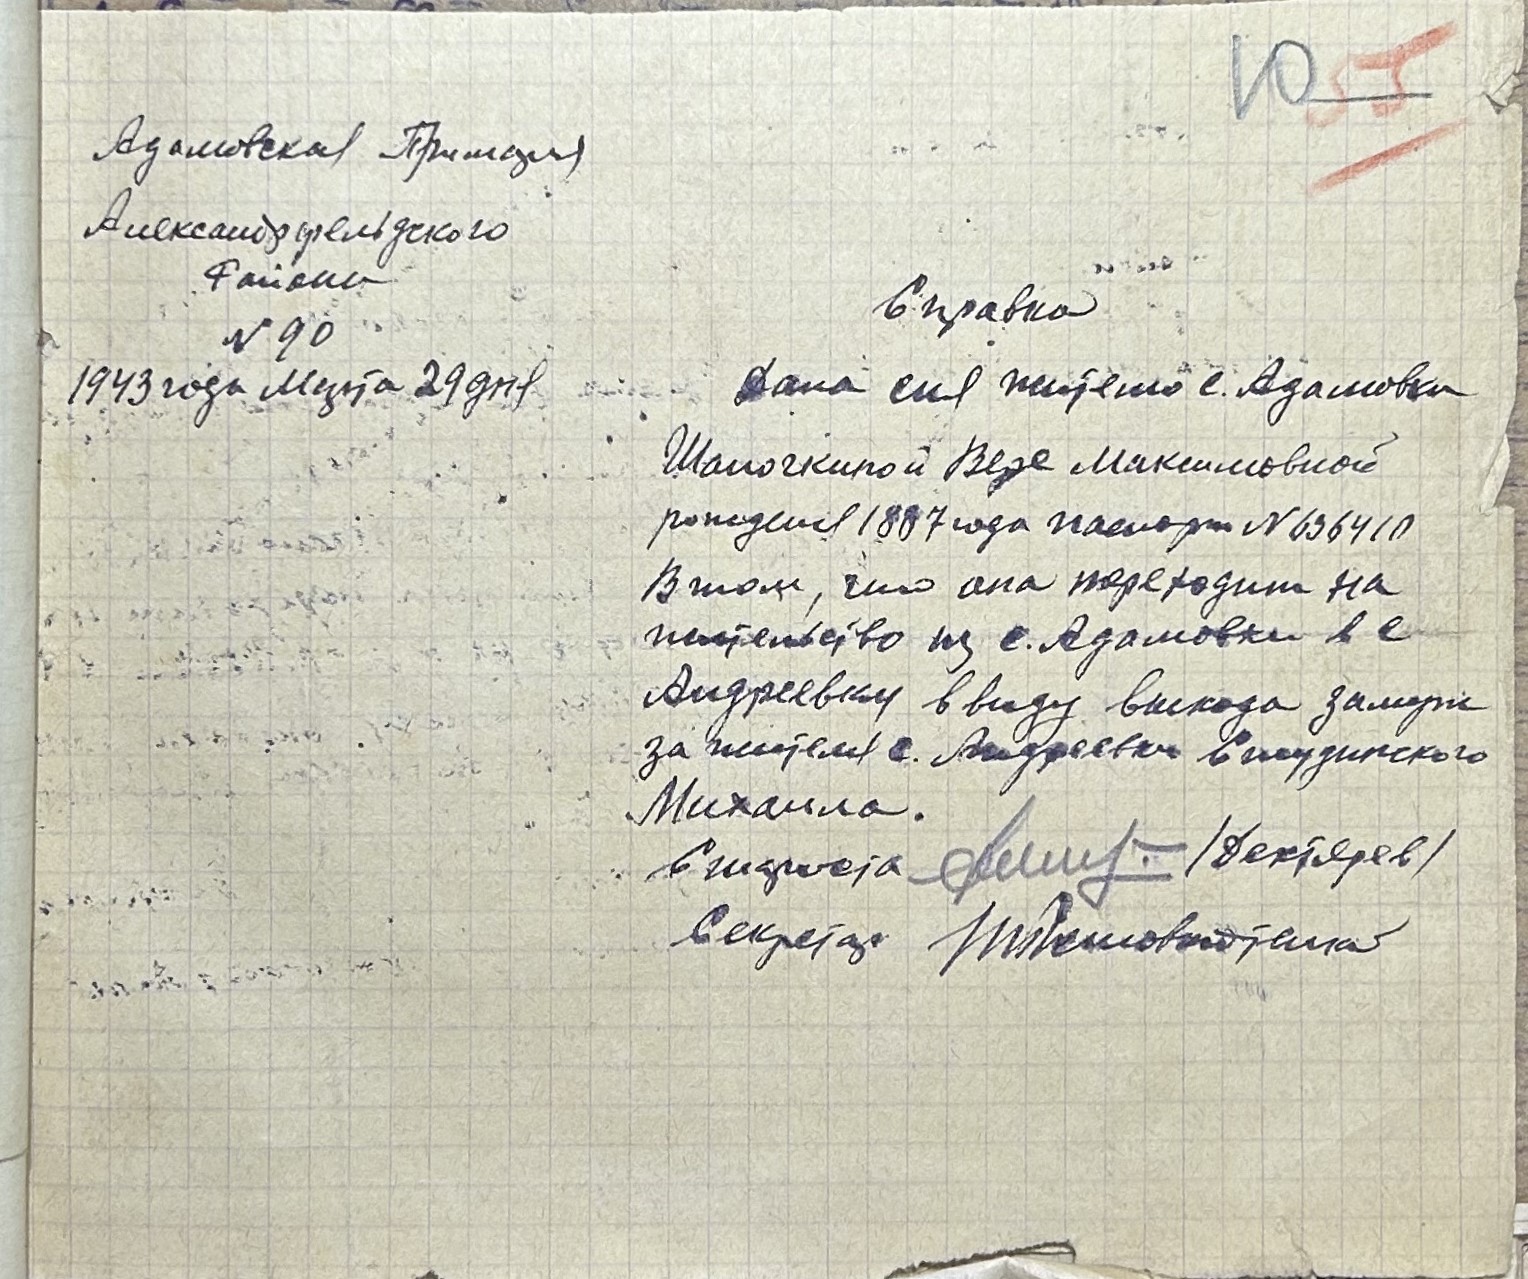 10 55
Адамовская Примария
Александрфельдского
Района
N 90
1943 года Марта 29 дня
Справка
Дана сия жителю с. Адамовки
Шапочкиной Вере Максимовной
рождения 1887 года паспорт N 636410
В том, что она переходит на
жительство из с. Адамовки в с
Андреевку ввиду выхода замуж
за жителя с. Андреевки
Михаила.
Староста /Дектярев/
Секретарь